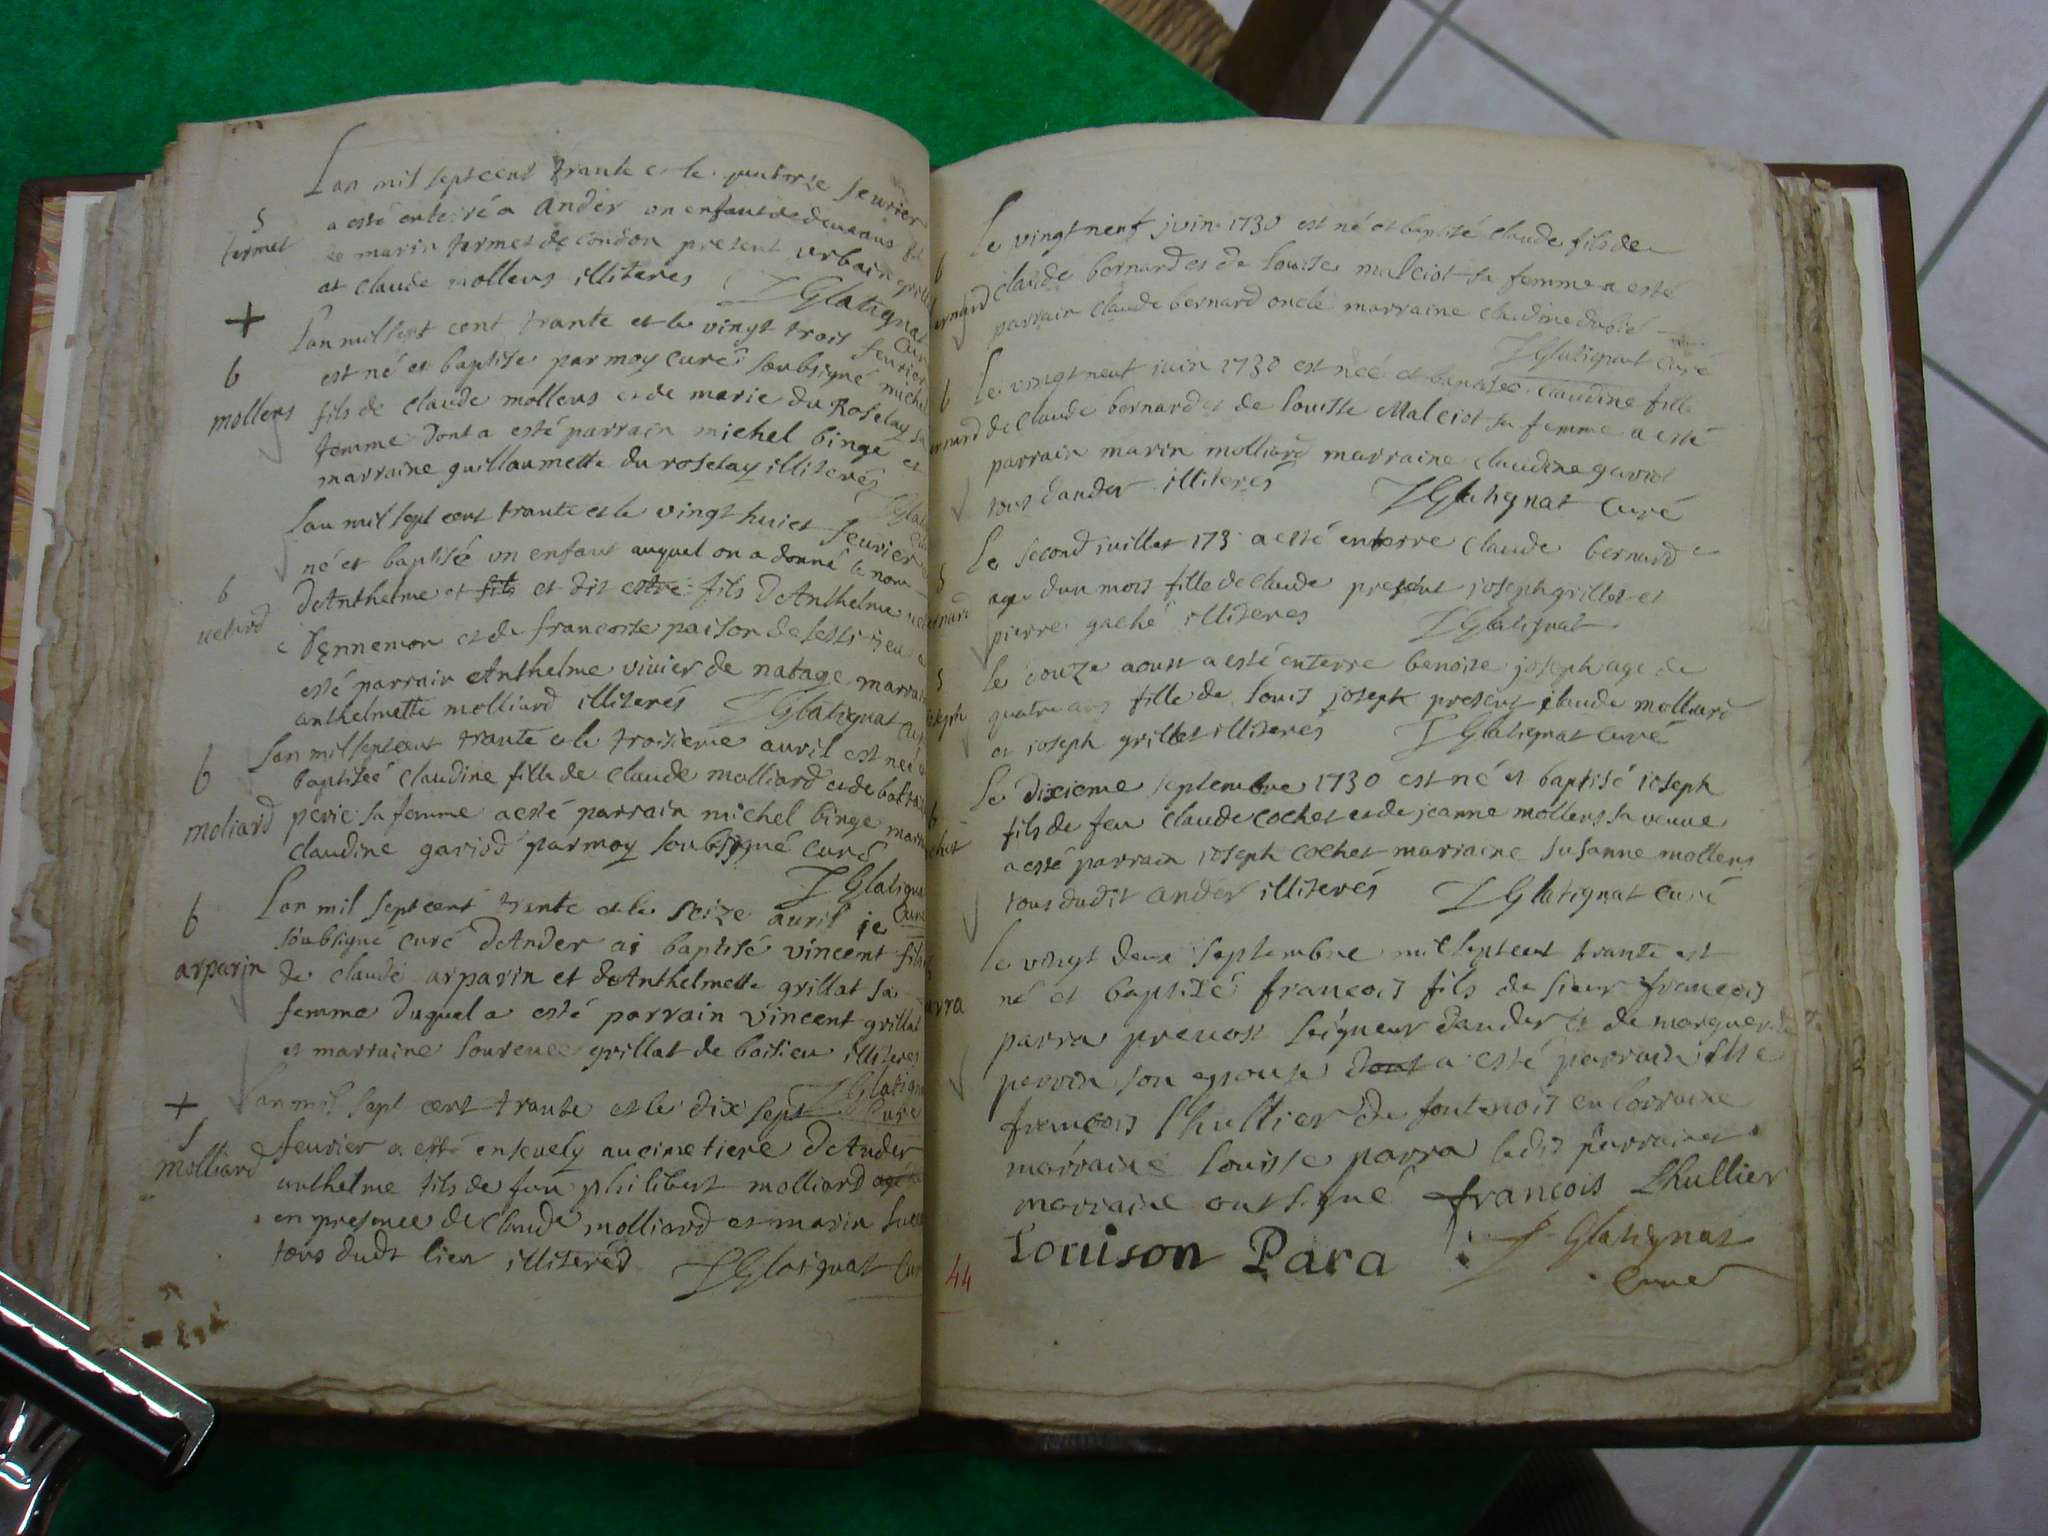 Lan mil sept cent trante et le quatorze feurier
S
termet
a esté enterré a Ander un enfant de deux ans fil
de marin termet de condon present urbain grillet
et claude mollens illiteres
J Glatignat Cur
+
Lan mil sept cent trante et le vingt trois feurier
b
mollens
est né et baptise par moy curé soubsigné michel
fils de claude mollens et de marie du Roselay sa
femme dont a esté parrain michel binge et
marraine guillaumette du roselay illiterés
J Glat
Lan mil sept cent trante et le vingt huict feurier
né et baptisé un enfant auquel on a donné le nom
b
uetard
de Anthelme et fils et dit estre fils de Anthelme
Dennemon et de francoise paison de
esté parrain Anthelme vivier de natage marrain
anthelmette molliard illiterés J Glatignat Cur
Lan mil sept cent trante et le troisieme auril est neé
b
moliard
baptiseé claudine fille de claude molliard et de
perie sa femme a esté parrain michel binge marr
claudine gariod par moy soubsigné curé
J Glatigna
Curé
Lan mil sept cent trante et le seize auril je
b
arparin
soubsigné curé de Ander ai baptisé vincent fils
de claude arparin et de Anthelmette grillat sa
femme duquel a esté parrain vincent grillat
et marraine lourence grillat de boisieu illiteres
J Glatign
Curé
+
Lan mil sept cent trante et le dix sept
S
molliard
feurier a esté ensevely au cimetiere de Ander
anthelme fils de feu philibert molliard agé
en presence de claude molliard et marin
tous dudt lieu illiterés J Glatignat Cur
Le vingt neuf juin 1730 est né et baptisé claude fils de
b
ernard
claude bernard et de louise malciot sa femme a esté
parrain claude bernard oncle marraine claudine dubié
J Glatignat Curé
Le vingt neuf juin 1730 est neé et baptiseé claudine fille
b
ernard
de claude bernard et de louisse Malciot sa femme a esté
parrain marin molliard marraine claudine gariod
tous dander illiterés J Glatignat Curé
Le second juillet 173 a esté enterre claude bernard
S
ernard
ageé dun mois fille de claude present joseph grillet et
pierre gaché illiteres J Glatignat
Le douze aoust a esté enterre benoite joseph age de
S
joseph
quatre ans fille de louis joseph present claude molliard
et joseph grillet illiterés J Glatignat curé
Le dixieme septembre 1730 est né et baptisé joseph
b
chet
fils de feu claude cochet et de jeanne mollens sa veuve
a esté parrain joseph cochet marraine susanne mollens
tous dudit ander illiterés J Glatignat Curé
Le vingt deux septembre mil sept cent trante est
né et baptisé francois fils de sieur francois
arra
parra prevost seigneur dander et de marguerite
perrin son epouse dont a esté parrain
francois lhullier de fontenois en lorraine
marraine louisse parra ledit parrain et
marraine ont signé françois Lhullier
Louison Para J Glatignat
Curé
44